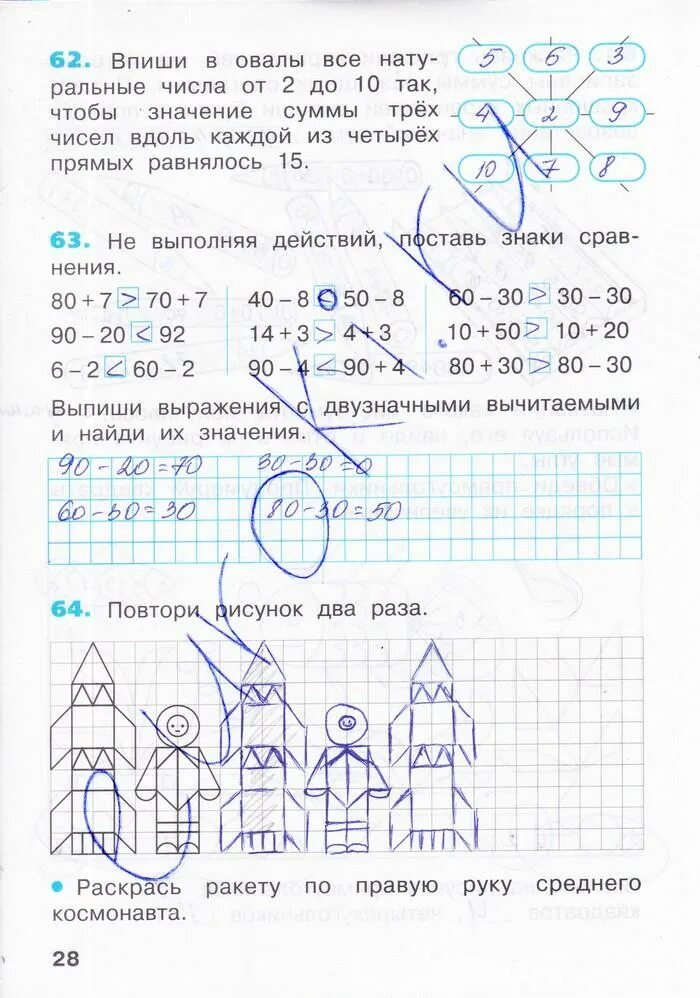 62. Впиши в овалы все нату-
ральные числа от 2 до 10 так,
чтобы значение суммы трёх
чисел вдоль каждой из четырёх
прямых равнялось 15.
5 6 3
4 2 9
10 7 8
63. Не выполняя действий, поставь знаки срав-
нения.
80 + 7 > 70 + 7 40 – 8 < 50 – 8 60 – 30 > 30 – 30
90 – 20 < 92 14 + 3 > 4 + 3 10 + 50 > 10 + 20
6 – 2 < 60 – 2 90 – 4 < 90 + 4 80 + 30 > 80 – 30
Выпиши выражения с двузначными вычитаемыми
и найди их значения.
90 – 20 = 70 30 – 30 = 0
60 – 30 = 30 80 – 30 = 50
64. Повтори рисунок два раза.
• Раскрась ракету по правую руку среднего
космонавта.
28